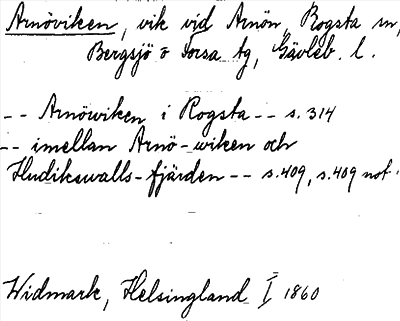 Arnöviken, vik vid Arnön, Rogsta sn,
Bergsjö o Forsa tg, Gävleb. l.
-- Arnöwiken i Rogsta -- s. 314
-- imellan Arnö-wiken och
Hudikswalls-fjärden -- s. 409, s. 409 not.
Widmark, Helsingland I 1860